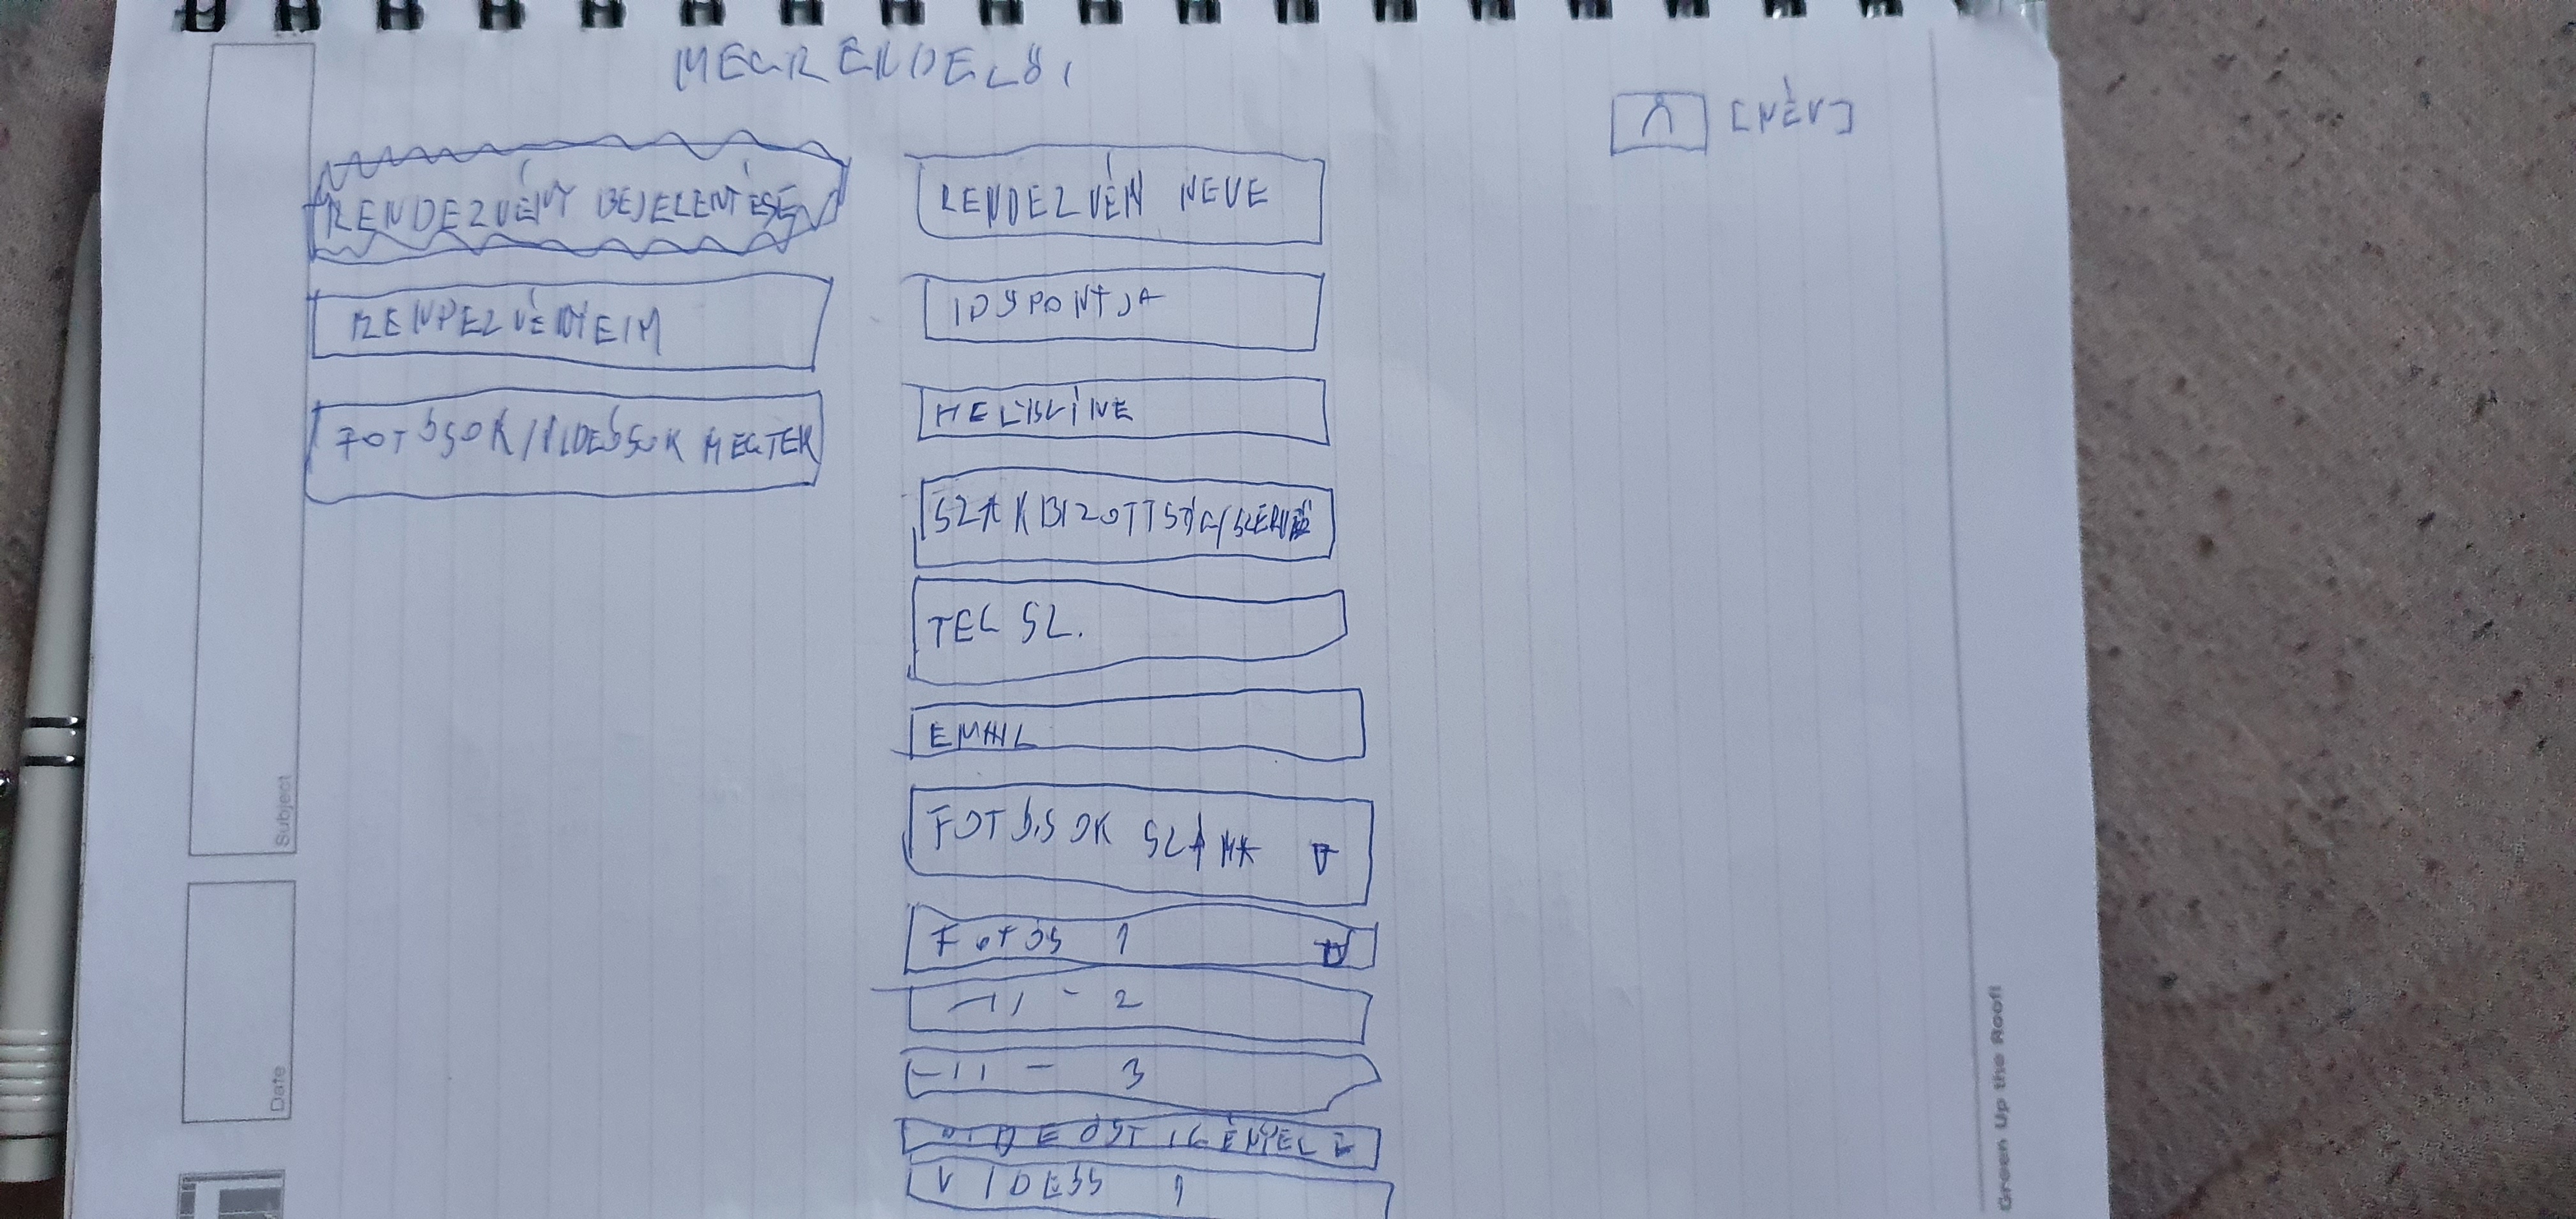 MEGRENDELŐI
[NÉV]
RENDEZVÉNY BEJELENTÉSE
RENDEZVÉNYEIM
FOTÓSOK/VIDEÓSOK MEGTEK
RENDEZVÉN NEVE
IDŐPONTJA
HELYSZÍNE
SZAKBIZOTTSÁG/
TEL SZ.
EMAIL
FOTÓSOK SZÁMA
FOTÓS 1
-11- 2
-11- 3
VIDEÓST IGÉNYEL
VIDEÓS 1
Subject
Date
Green Up the Roof!